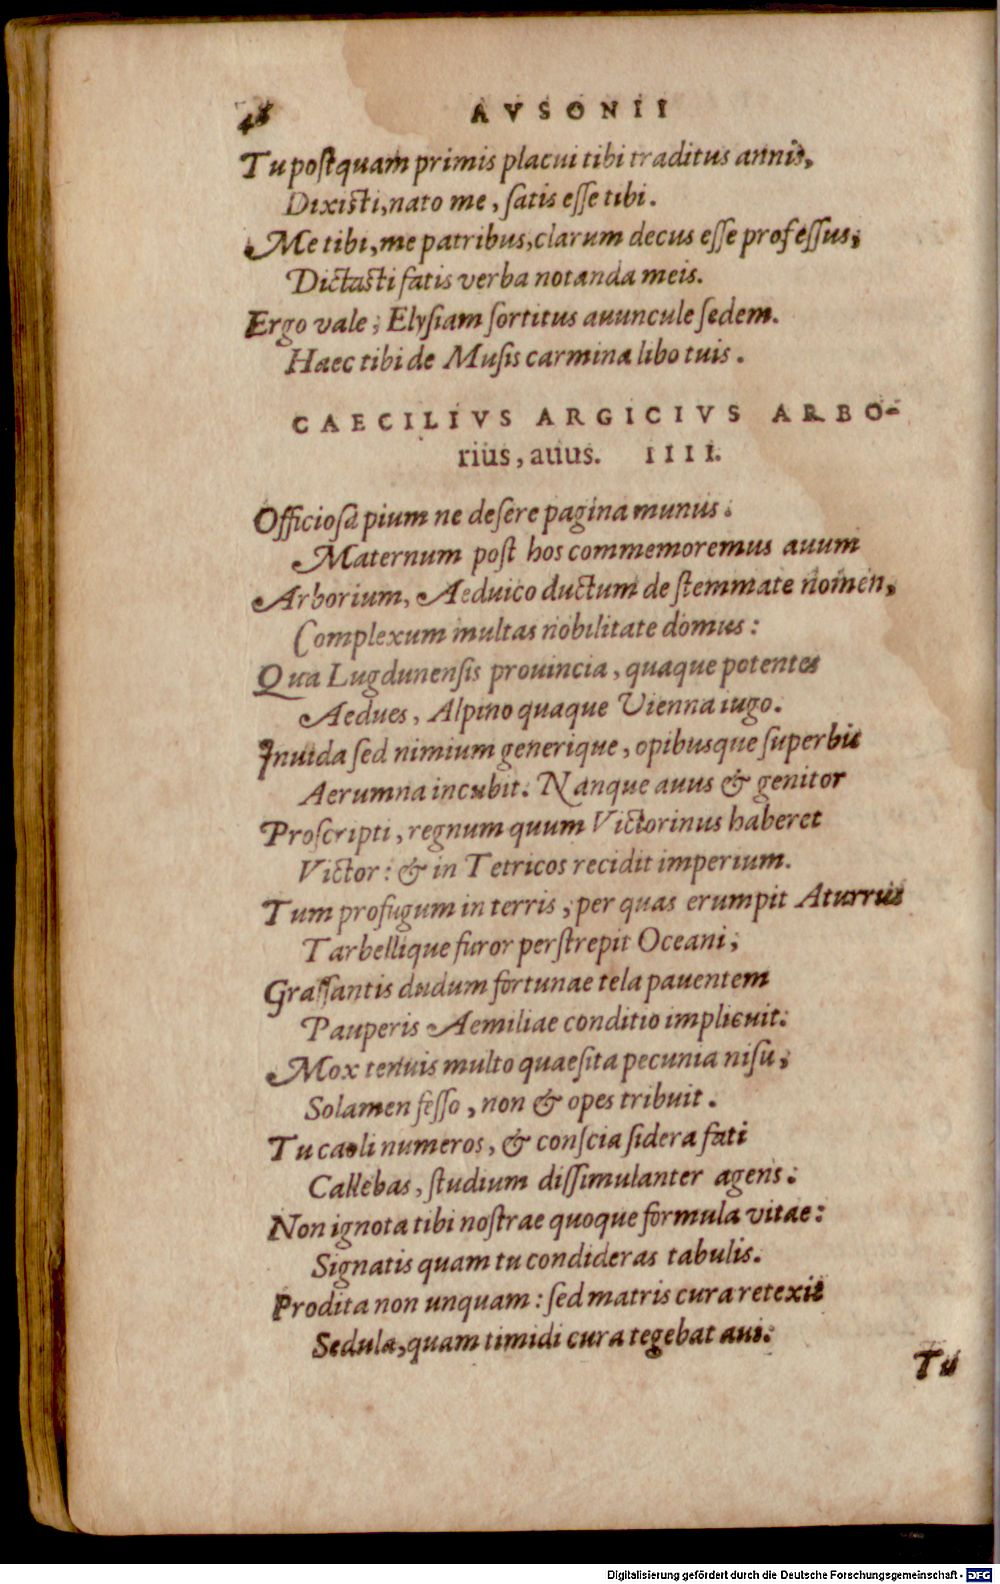 48 AVSONII
Tu postquam primis placui tibi traditus annis,
Dixisti, nato me, satis esse tibi.
Me tibi, me patribus, clarum decus esse professus;
Dictasti fatis verba notanda meis.
Ergo vale; Elysiam sortitus auuncule sedem.
Haec tibi de Musis carmina libo tuis.
CAECILIVS ARGICIVS ARBO-
rius, auus. IIII.
Officiosa pium ne desere pagina munus:
Maternum post hos commemoremus auum
Arborium, Aeduico ductum de stemmate nomen,
Complexum multas nobilitate domus:
Qua Lugdunensis prouincia, quaque potentes
Aedues, Alpino quaque Vienna iugo.
Inuida sed nimium generique, opibusque superbis
Aerumna incubit. Nanque auus & genitor
Proscripti, regnum quum Victorinus haberet
Victor: & in Tetricos recidit imperium.
Tum profugum in terris, per quas erumpit Aturrus
Tarbellique furor perstrepit Oceani;
Grassantis dudum fortunae tela pauentem
Pauperis Aemiliae conditio implicuit:
Mox tenuis multo quaesita pecunia nisu;
Solamen fesso, non & opes tribuit.
Tu caeli numeros, & conscia sidera fati
Callebas, studium dissimulanter agens:
Non ignota tibi nostrae quoque formula vitae:
Signatis quam tu condideras tabulis.
Prodita non unquam: sed matris cura retexit
Sedula, quam timidi cura tegebat aui:
Tu
Digitalisierung gefördert durch die Deutsche Forschungsgemeinschaft - DFG